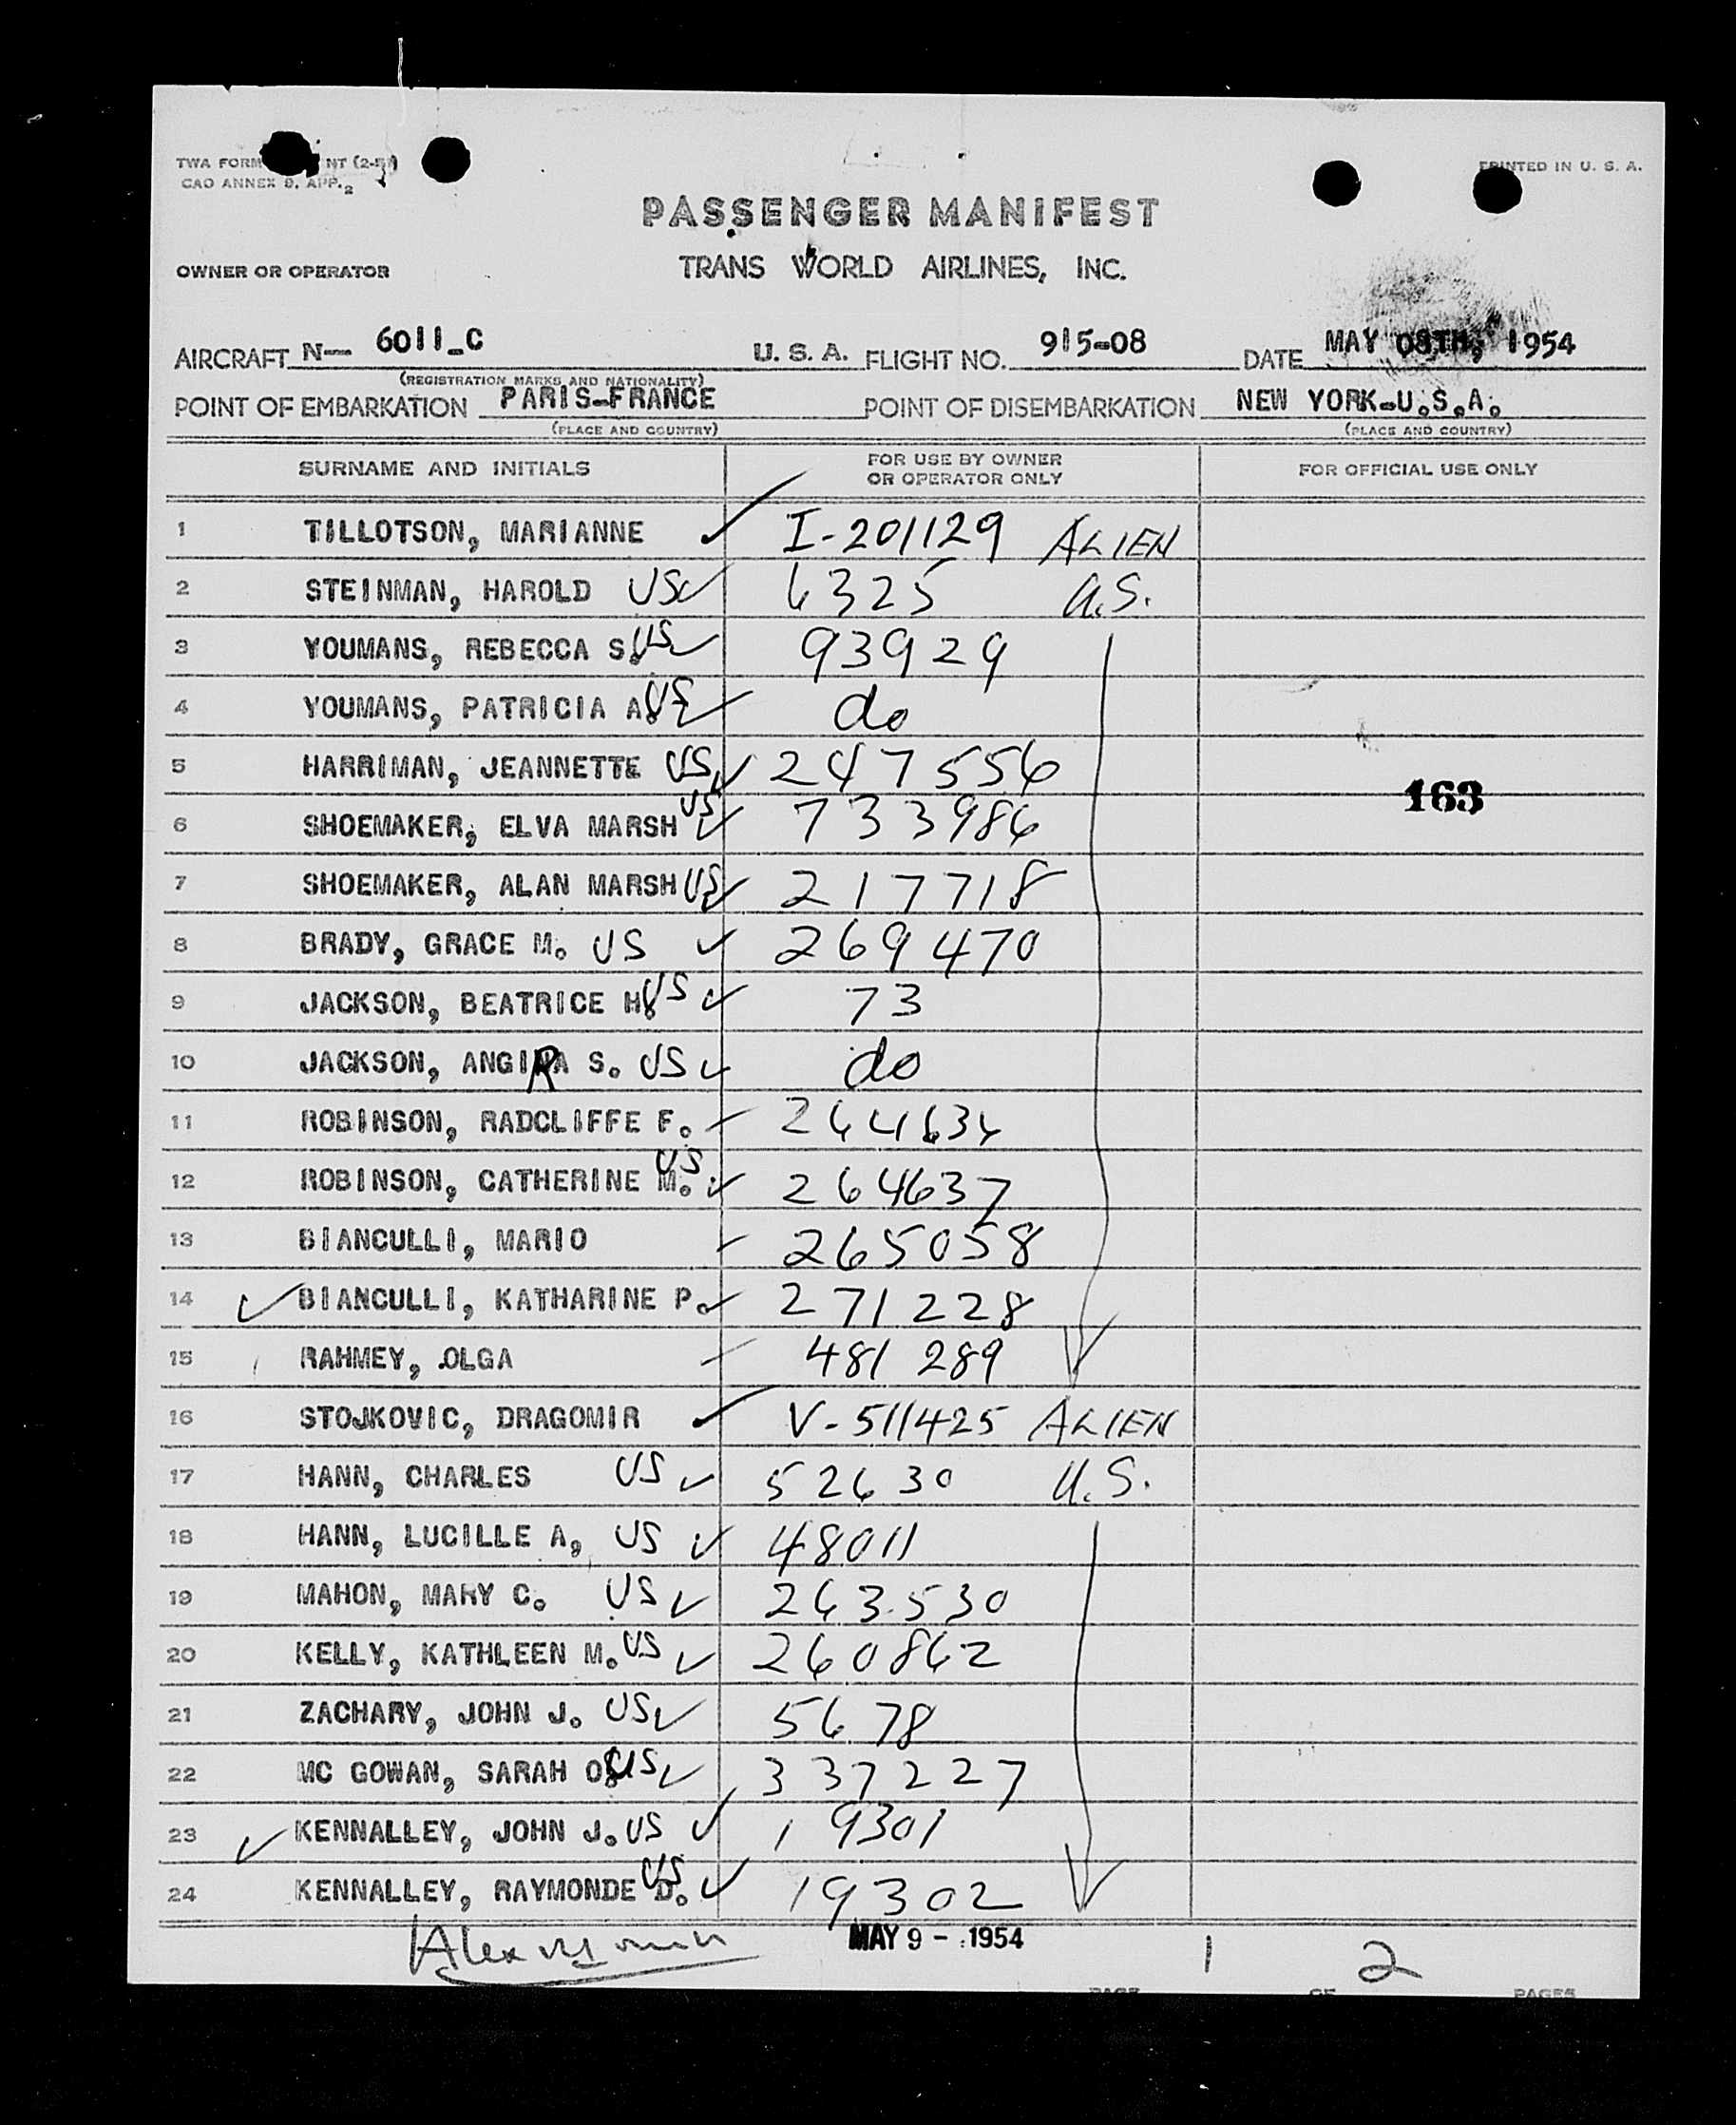 TWA FORM NT (2-51)
PRINTED IN U. S. A.
CAO ANNEX 9, APP. 2
PASSENGER MANIFEST
OWNER OR OPERATOR TRANS WORLD AIRLINES, INC.
AIRCRAFT N— 6011-C U. S. A. FLIGHT NO. 915-08 DATE MAY 08TH, 1954
(REGISTRATION MARKS AND NATIONALITY)
POINT OF EMBARKATION PARIS-FRANCE POINT OF DISEMBARKATION NEW YORK-U.S.A.
(PLACE AND COUNTRY) (PLACE AND COUNTRY)
SURNAME AND INITIALS FOR USE BY OWNER OR OPERATOR ONLY FOR OFFICIAL USE ONLY
1 TILLOTSON, MARIANNE ✓ I-201129 ALIEN
2 STEINMAN, HAROLD US ✓ 6325 U.S.
3 YOUMANS, REBECCA S. US ✓ 93929
4 YOUMANS, PATRICIA A. US ✓ do
5 HARRIMAN, JEANNETTE US ✓ 247556
163
6 SHOEMAKER, ELVA MARSH US ✓ 733986
7 SHOEMAKER, ALAN MARSH US ✓ 217718
8 BRADY, GRACE M. US ✓ 269470
9 JACKSON, BEATRICE H. US ✓ 73
10 JACKSON, ANGIRA S. US ✓ do
11 ROBINSON, RADCLIFFE F. ✓ 264636
12 ROBINSON, CATHERINE M. US ✓ 264637
13 BIANCULLI, MARIO ✓ 265058
14 ✓ BIANCULLI, KATHARINE P. ✓ 271228
15 RAHMEY, OLGA ✓ 481289
16 STOJKOVIC, DRAGOMIR ✓ V-511425 ALIEN
17 HANN, CHARLES US ✓ 52630 U.S.
18 HANN, LUCILLE A, US ✓ 48011
19 MAHON, MARY C. US ✓ 263530
20 KELLY, KATHLEEN M. US ✓ 260862
21 ZACHARY, JOHN J. US ✓ 5678
22 MC GOWAN, SARAH O. US ✓ 337227
23 ✓ KENNALLEY, JOHN J. US ✓ 19301
24 KENNALLEY, RAYMONDE D. US ✓ 19302
MAY 9 - 1954 1 2
PAGE OF PAGES